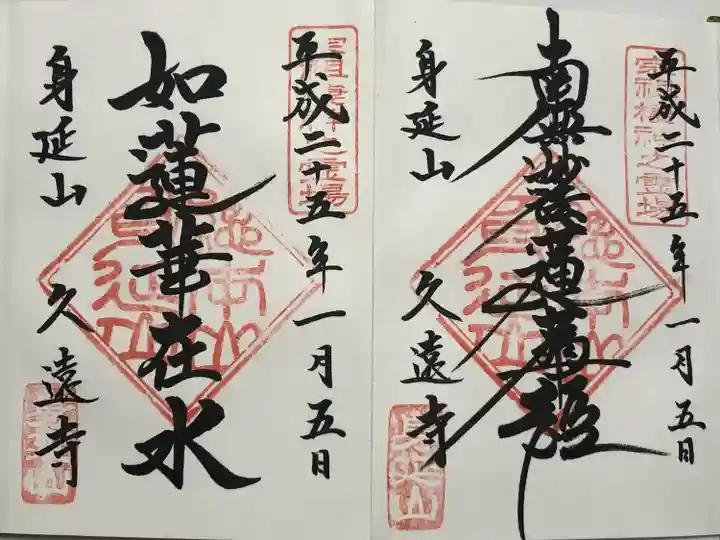 平成二十五年一月五日
南無妙法蓮華経
身延山 久遠寺
平成二十五年一月五日
如蓮華在水
身延山 久遠寺